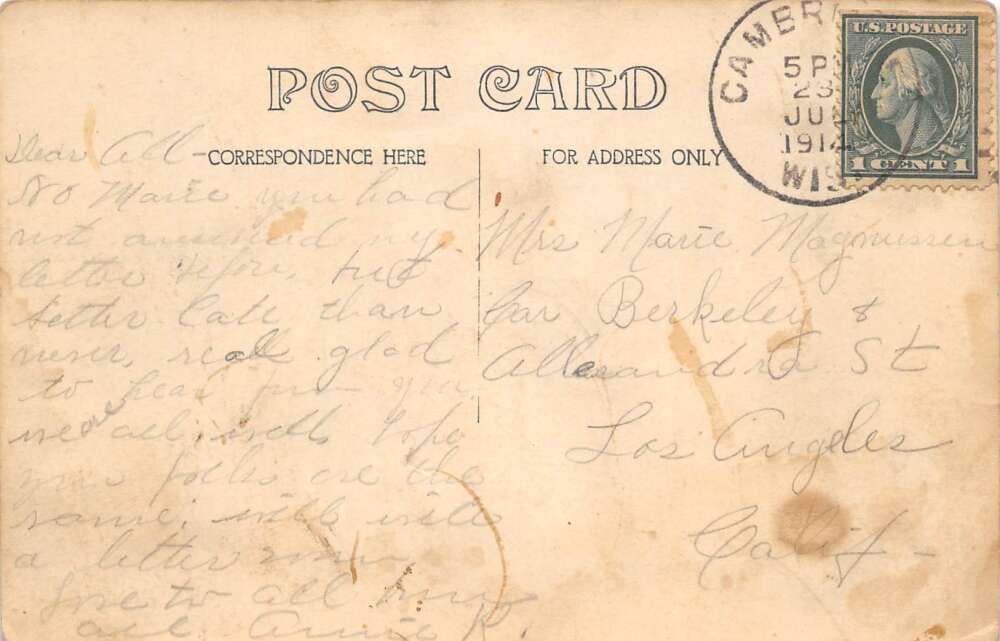 POST CARD
CORRESPONDENCE HERE
FOR ADDRESS ONLY
CAMBRI
5 P
23
JUL
1914
WIS.
U.S. POSTAGE
1 CENT 1
Dear All -
No Marie you had
not answered my
letter before, but
better late than
never, real glad
to hear from you,
we are all well hope
your folks are the
same, will write
a letter soon
love to all from
all. Annie K.
Mrs Marie Magnussen
Cor Berkeley &
Allexandra St
Los Angeles
Calif -